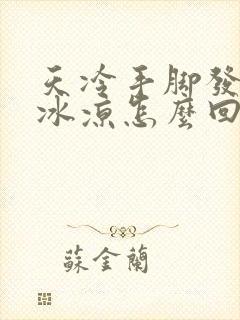 天冷手脚發
冰涼怎麼回
蘇金蘭